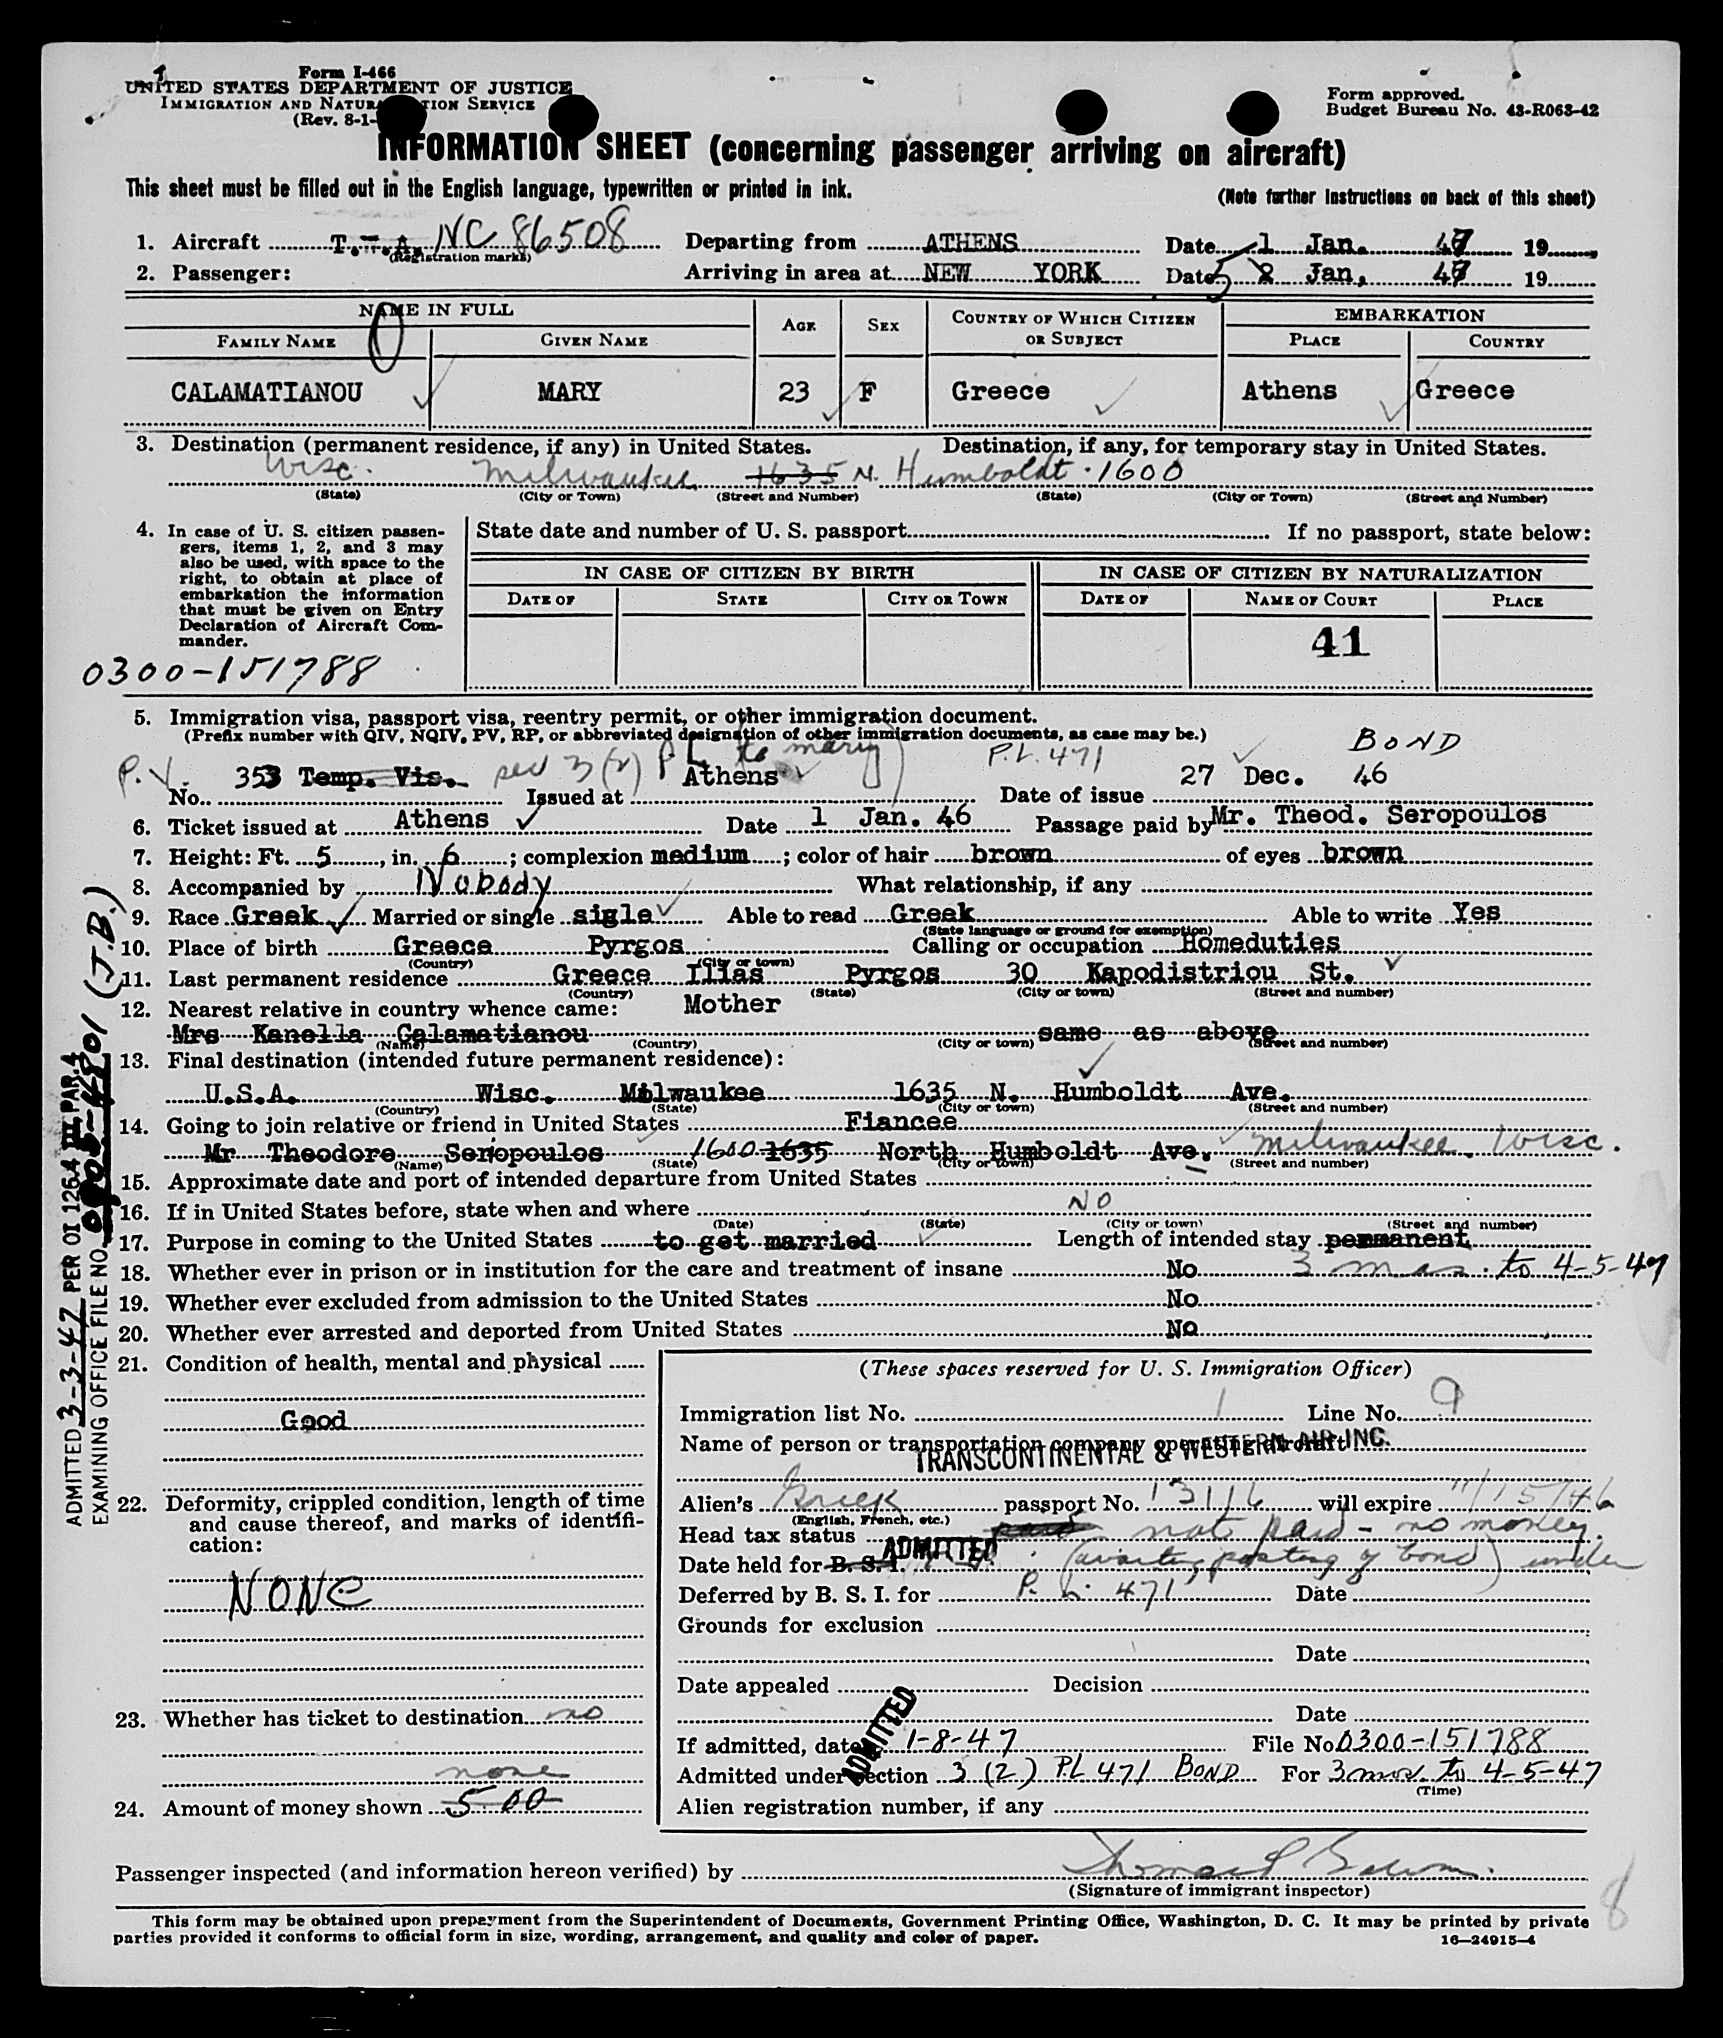 Form I-466
UNITED STATES DEPARTMENT OF JUSTICE
IMMIGRATION AND NATURALIZATION SERVICE
(Rev. 8-1-
Form approved.
Budget Bureau No. 43-R063-42
INFORMATION SHEET (concerning passenger arriving on aircraft)
This sheet must be filled out in the English language, typewritten or printed in ink.
(Note further instructions on back of this sheet)
1. Aircraft T.W.A. NC 86508 Departing from ATHENS Date 1 Jan. 47 19
(Registration marks)
2. Passenger: Arriving in area at NEW YORK Date 5 2 Jan, 47 19
NAME IN FULL AGE SEX COUNTRY OF WHICH CITIZEN OR SUBJECT EMBARKATION
FAMILY NAME GIVEN NAME PLACE COUNTRY
CALAMATIANOU MARY 23 F Greece Athens Greece
3. Destination (permanent residence, if any) in United States. Destination, if any, for temporary stay in United States.
Wisc. Milwaukee 1635 N. Humboldt · 1600
(State) (City or Town) (Street and Number) (State) (City or Town) (Street and Number)
4. In case of U. S. citizen passen-
gers, items 1, 2, and 3 may
also be used, with space to the
right, to obtain at place of
embarkation the information
that must be given on Entry
Declaration of Aircraft Com-
mander.
0300-151788
State date and number of U. S. passport If no passport, state below:
IN CASE OF CITIZEN BY BIRTH IN CASE OF CITIZEN BY NATURALIZATION
DATE OF STATE CITY OR TOWN DATE OF NAME OF COURT PLACE
41
5. Immigration visa, passport visa, reentry permit, or other immigration document.
(Prefix number with QIV, NQIV, PV, RP, or abbreviated designation of other immigration documents, as case may be.)
P.V. 353 Temp. Vis. sec 3(2) P L (to marry) Athens P.L. 471 27 Dec. 46 BOND
No. Issued at Date of issue
6. Ticket issued at Athens Date 1 Jan. 46 Passage paid by Mr. Theod. Seropoulos
7. Height: Ft. 5, in. 6; complexion medium; color of hair brown of eyes brown
8. Accompanied by Nobody What relationship, if any
9. Race Greek Married or single sigle Able to read Greek Able to write Yes
(State language or ground for exemption)
10. Place of birth Greece Pyrgos Calling or occupation Homeduties
(Country) (City or town)
11. Last permanent residence Greece Ilias Pyrgos 30 Kapodistriou St.
(Country) (State) (City or town) (Street and number)
12. Nearest relative in country whence came: Mother
Mrs Kanella Calamatianou same as above
(Name) (Country) (City or town) (Street and number)
13. Final destination (intended future permanent residence):
U.S.A. Wisc. Milwaukee 1635 N. Humboldt Ave.
(Country) (State) (City or town) (Street and number)
14. Going to join relative or friend in United States Fiancee
Mr Theodore Seropoulos 1600 1635 North Humboldt Ave. Milwaukee. Wisc.
(Name) (State) (City or town) (Street and number)
15. Approximate date and port of intended departure from United States
16. If in United States before, state when and where NO
(Date) (State) (City or town) (Street and number)
17. Purpose in coming to the United States to get married Length of intended stay permanent
18. Whether ever in prison or in institution for the care and treatment of insane No 3 mos. to 4-5-47
19. Whether ever excluded from admission to the United States No
20. Whether ever arrested and deported from United States No
21. Condition of health, mental and physical
Good
22. Deformity, crippled condition, length of time
and cause thereof, and marks of identifi-
cation:
NONE
23. Whether has ticket to destination no
none
24. Amount of money shown 5 00
(These spaces reserved for U. S. Immigration Officer)
Immigration list No. 1 Line No. 9
Name of person or transportation company operating aircraft
TRANSCONTINENTAL & WESTERN AIR INC.
Alien's Greek passport No. 13116 will expire 11/15/46
(English, French, etc.)
Head tax status paid not paid - no money.
Date held for B. S. I. ADMITTED (awaiting posting of bond) under
Deferred by B. S. I. for P. L. 471 Date
Grounds for exclusion
Date
Date appealed Decision
Date
ADMITTED
If admitted, date 1-8-47 File No. 0300-151788
Admitted under section 3 (2) PL 471 BOND For 3 mos. to 4-5-47
(Time)
Alien registration number, if any
Passenger inspected (and information hereon verified) by
(Signature of immigrant inspector)
8
This form may be obtained upon prepayment from the Superintendent of Documents, Government Printing Office, Washington, D. C. It may be printed by private
parties provided it conforms to official form in size, wording, arrangement, and quality and color of paper.
16—24915-4
ADMITTED 3-3-47 PER OI 126.4 III, PAR. 4
EXAMINING OFFICE FILE NO. (J.B.)